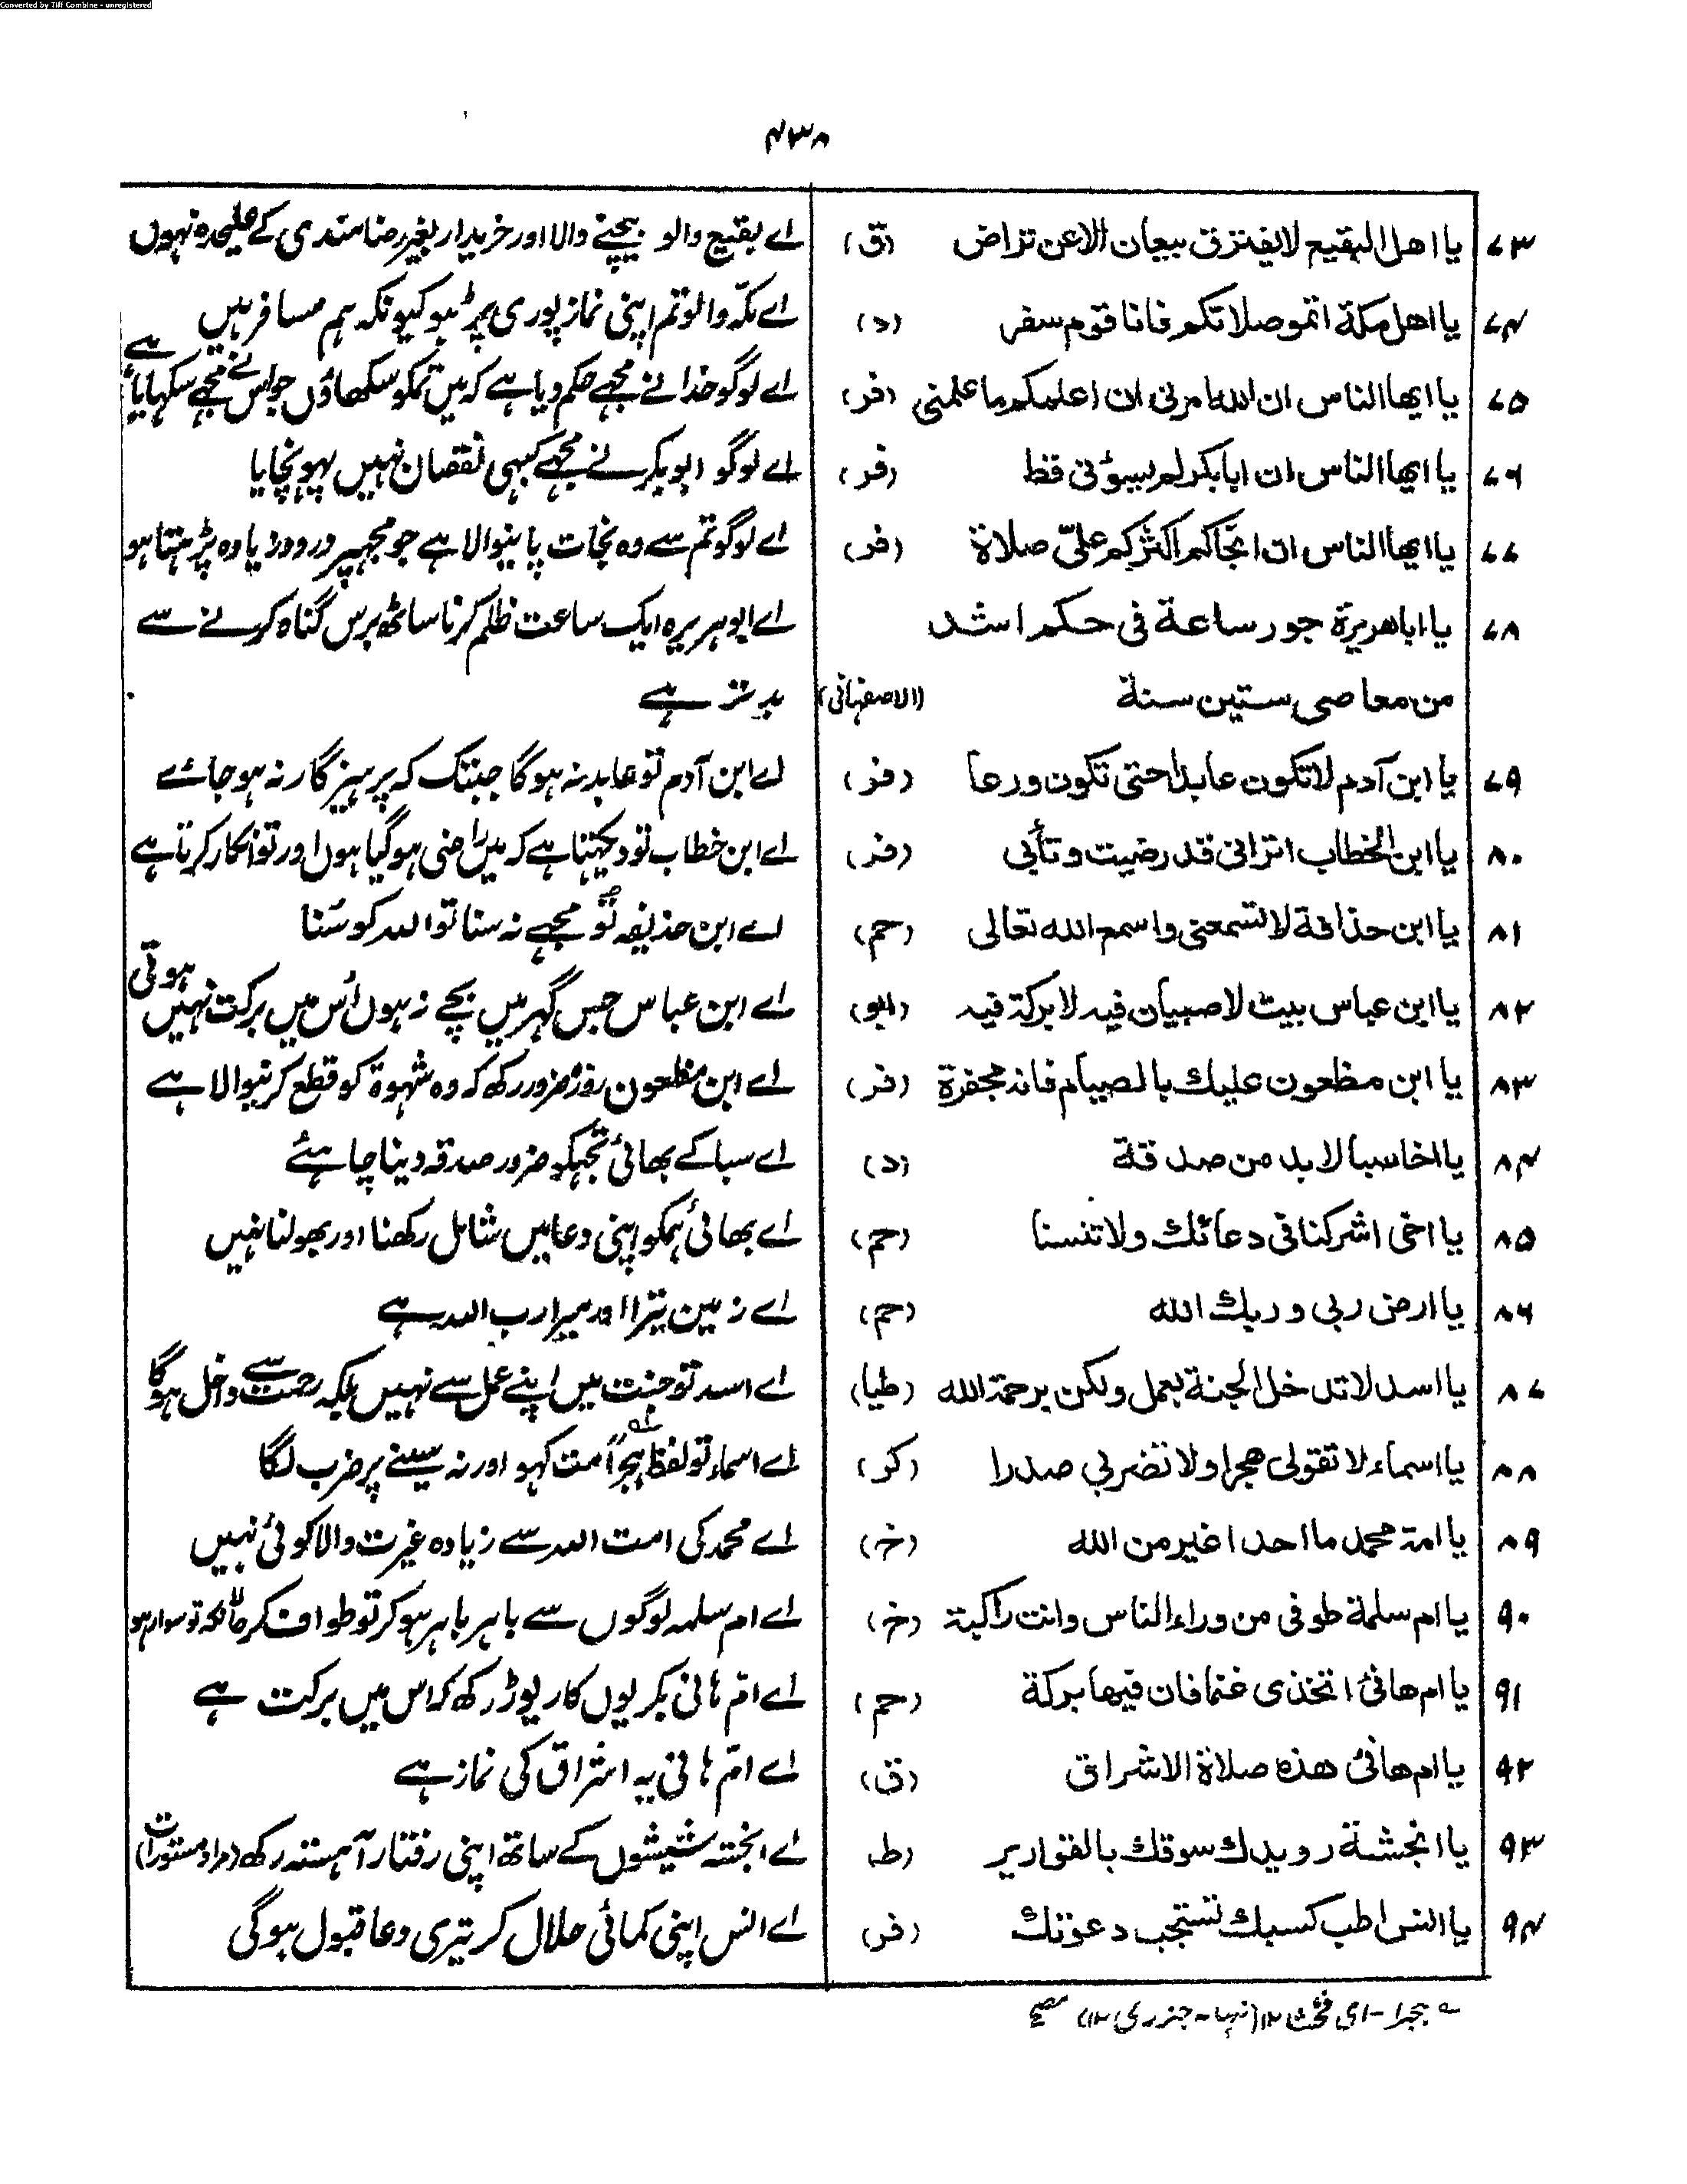 Converted by Tiff Combine - unregistered
۴۳۸
۷۳ یا اهل البقیع لایفترق بیعان الاعن تراض (ق) اے بقیع والو بیچنے والا اور خریدار بغیر رضامندی کے علیحدہ نہوں
۷۴ یا اهل مكة اتموصلاتكم فانا قوم سفر (د) اے مکّہ والو تم اپنی نماز پوری پڑہو کیونکہ ہم مسافر ہیں
۷۵ یا ایها الناس ان الله امرنی ان اعلمكم ما علمنی (فر) اے لوگو خدا نے مجھے حکم دیا ہے کہ میں تمکو سکھاؤں جو اس نے مجھے سکہایا ہے
۷۶ یا ایها الناس ان ابا بكر لم یسؤنی قط (فر) اے لوگو ابو بکر نے مجھے کبہی نقصان نہیں پہونچایا
۷۷ یا ایها الناس ان انجاكم اكثركم علیّ صلاة (فر) اے لوگو تم سے وہ نجات پانیوالا ہے جو مجہپر درود زیادہ پڑہتا ہو
۷۸ یا اباهریرة جور ساعة فی حكم اشد اے ابو ہریرہ ایک ساعت ظلم کرنا ساٹھ برس گناہ کرنے سے
من معاصی ستین سنة (الاصفهانی) بدتر ہے
۷۹ یا ابن آدم لاتكون عابدا حتی تكون ورعا (فر) اے ابن آدم تو عابد نہ ہوگا جبتک کہ پرہیزگار نہ ہو جائے
۸۰ یا ابن الخطاب اترانی قد رضیت وتأبی (فر) اے ابن خطاب تو دیکہتا ہے کہ میں راضی ہو گیا ہوں اور تو انکار کرتا ہے
۸۱ یا ابن حذافة لا تسمعنی واسمع الله تعالی (حم) اے ابن حذیفہ تو مجھے نہ سنا تو اللہ کو سُنا
۸۲ یا ابن عباس بیت لا صبیان فیه لا بركة فیه (ابو) اے ابن عباس جس گہر میں بچے نہ ہوں اُس میں برکت نہیں ہوتی
۸۳ یا ابن مظعون علیك بالصیام فانه مجفرة (فر) اے ابن مظعون روزہ ضرور رکھ کہ وہ شہوۃ کو قطع کرنیوالا ہے
۸۴ یا اخاسبا لا بد من صدقة (د) اے سبا کے بھائی تجہکو ضرور صدقہ دینا چاہئے
۸۵ یا اخی اشركنا فی دعائك ولا تنسنا (حم) اے بھائی ہمکو اپنی دعا میں شامل رکھنا اور بھولنا نہیں
۸۶ یا ارض ربی وربك الله (حم) اے زمین تیرا اور میرا رب اللہ ہے
۸۷ یا اسد لا تدخل الجنة بعمل ولكن برحمة الله (طیا) اے اسد تو جنت میں اپنے عمل سے نہیں بلکہ رحمت سے داخل ہوگا
۸۸ یا اسماء لا تقولی هجرا ولا تضربی صدرا (كر) اے اسماء تو لفظ ہجراً مت کہو اور نہ سینے پر ضرب لگا
۸۹ یا امة محمد ما احد اغیر من الله (خ) اے محمد کی امت اللہ سے زیادہ غیرت والا کوئی نہیں
۹۰ یا ام سلمة طوفی من وراء الناس وانت راكبة (خ) اے ام سلمہ لوگوں سے باہر باہر ہو کر تو طواف کر حالانکہ تو سوار ہو
۹۱ یا ام هانئ اتخذی غنما فان فیها بركة (حم) اے امّ ہانی بکریوں کا ریوڑ رکھ کہ اس میں برکت ہے
۹۲ یا ام هانئ هذه صلاة الاشراق (ق) اے امّ ہانی یہ اشراق کی نماز ہے
۹۳ یا انجشة رویدك سوقك بالقواریر (ط) اے انجشہ شیشوں کے ساتھ اپنی رفتار آہستہ رکھ (مراد مستورات)
۹۴ یا انس اطب كسبك تستجب دعوتك (فر) اے انس اپنی کمائی حلال کر تیری دعا قبول ہوگی
ہجرا - ای فحش ۱۲ (نہایہ - جزری ۱۲) مصحح